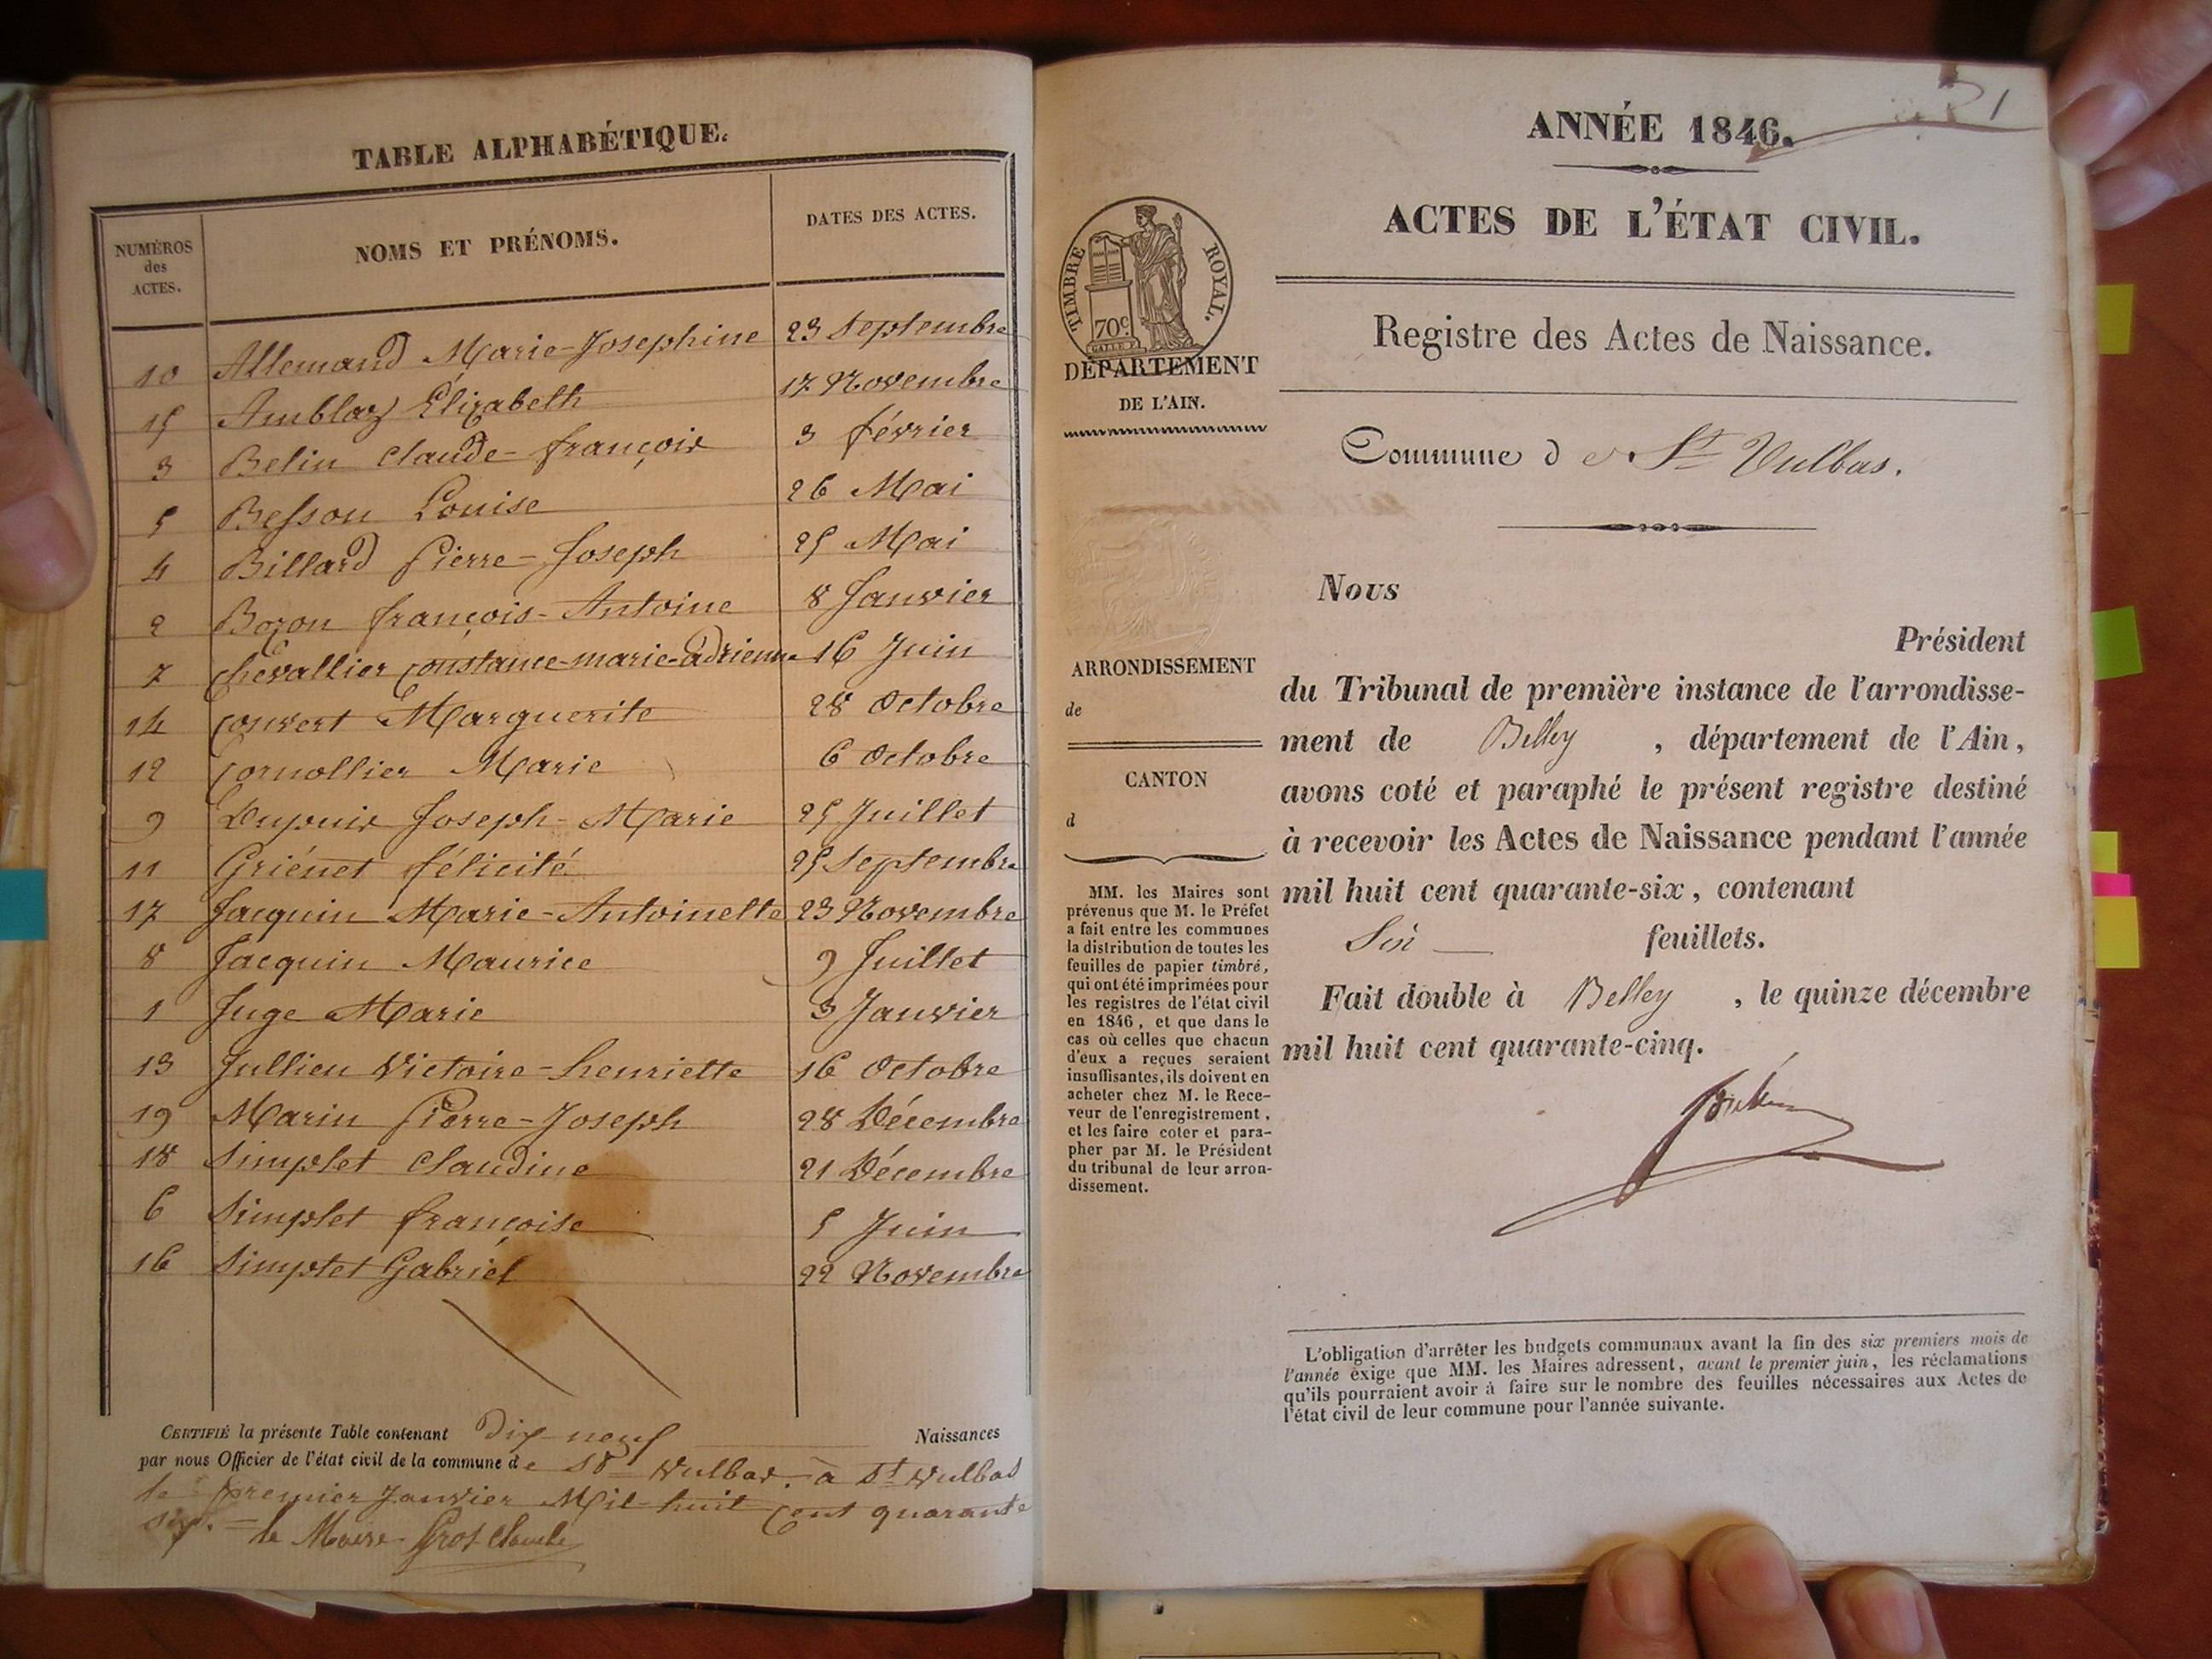 TABLE ALPHABÉTIQUE.
NUMÉROS des ACTES. NOMS ET PRÉNOMS. DATES DES ACTES.
10 Allemand Marie-Josephine 23 Septembre
15 Amblaz Elizabeth 17 Novembre
3 Belin Claude-françois 3 février
5 Besson Louise 26 Mai
4 Billard Pierre-Joseph 25 Mai
2 Bozon françois-Antoine 8 Janvier
7 Chevallier Constance-marie-adrienne 16 Juin
14 Convert Marguerite 28 Octobre
12 Cornollier Marie 6 Octobre
9 Dupuis Joseph-Marie 25 Juillet
11 Griénet félicité 25 Septembre
17 Jacquin Marie-Antoinette 23 Novembre
8 Jacquin Maurice 9 Juillet
1 Juge Marie 3 Janvier
13 Jullien Victoire-henriette 16 Octobre
19 Marin Pierre-Joseph 28 Décembre
18 Simplet Claudine 21 Décembre
6 Simplet françoise 5 Juin
16 Simplet Gabriel 22 Novembre
CERTIFIÉ la présente Table contenant Dix-neuf Naissances
par nous Officier de l'état civil de la commune de St Vulbas. à St Vulbas
le premier Janvier Mil-huit Cent quarante
sept. = le Maire Gros Claude
ANNÉE 1846.
1
ACTES DE L'ÉTAT CIVIL.
TIMBRE ROYAL.
70c
DÉPARTEMENT
DE L'AIN.
Registre des Actes de Naissance.
Commune de St Vulbas.
ARRONDISSEMENT
de
CANTON
d
MM. les Maires sont
prévenus que M. le Préfet
a fait entre les communes
la distribution de toutes les
feuilles de papier timbré,
qui ont été imprimées pour
les registres de l'état civil
en 1846, et que dans le
cas où celles que chacun
d'eux a reçues seraient
insuffisantes, ils doivent en
acheter chez M. le Rece-
veur de l'enregistrement,
et les faire coter et para-
pher par M. le Président
du tribunal de leur arron-
dissement.
Nous
Président
du Tribunal de première instance de l'arrondisse-
ment de Belley, département de l'Ain,
avons coté et paraphé le présent registre destiné
à recevoir les Actes de Naissance pendant l'année
mil huit cent quarante-six, contenant
Six feuillets.
Fait double à Belley, le quinze décembre
mil huit cent quarante-cinq.
L'obligation d'arrêter les budgets communaux avant la fin des six premiers mois de
l'année exige que MM. les Maires adressent, avant le premier juin, les réclamations
qu'ils pourraient avoir à faire sur le nombre des feuilles nécessaires aux Actes de
l'état civil de leur commune pour l'année suivante.